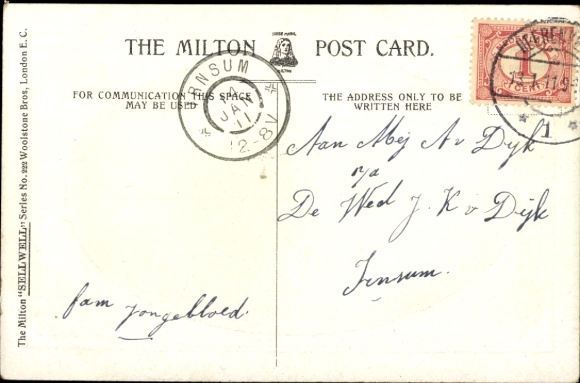 THE MILTON POST CARD.
FOR COMMUNICATION THIS SPACE
MAY BE USED
THE ADDRESS ONLY TO BE
WRITTEN HERE
RNSUM
4
JAN
11
12-8V
HEEREN
1
CENT
1
Aan Mej A v Dijk
p/a
De Wed J. K v Dijk
Irnsum.
fam Jongebloed.
The Milton "SELLWELL" Series No. 222 Woolstone Bros, London E.C.